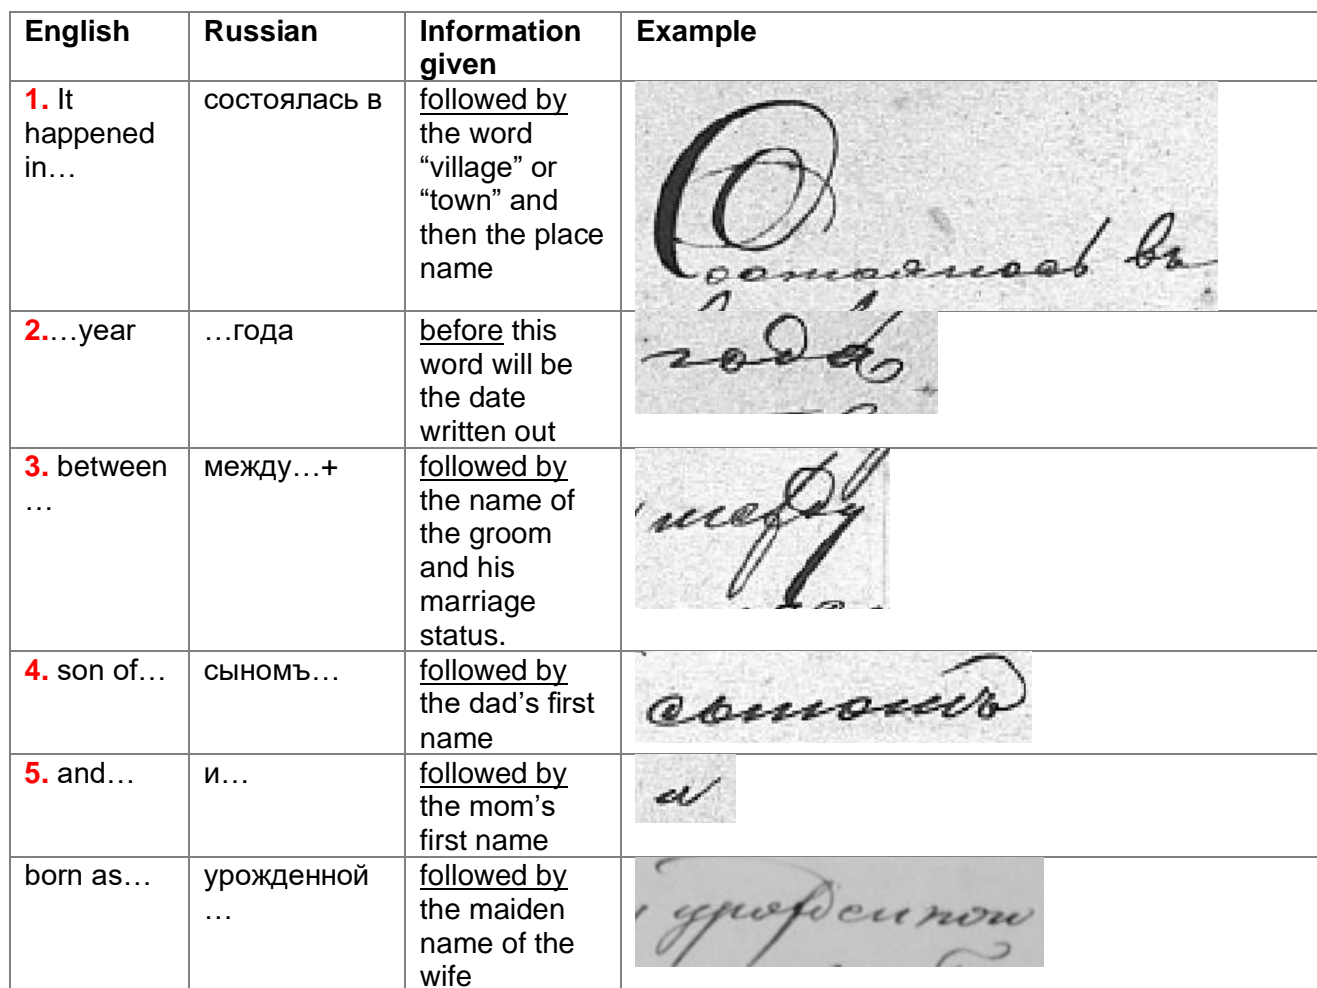 English
Russian
Information
given
Example
1. It
happened
in…
состоялась в
followed by
the word
“village” or
“town” and
then the place
name
Состоялось въ
2.…year
…года
before this
word will be
the date
written out
года
3. between
…
между…+
followed by
the name of
the groom
and his
marriage
status.
между
4. son of…
сыномъ…
followed by
the dad’s first
name
сыномъ
5. and…
и…
followed by
the mom’s
first name
и
born as…
урожденной
…
followed by
the maiden
name of the
wife
урожденной